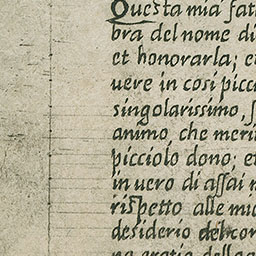 Questa mia fat
bra del nome di
et honorarla; e
uere in così picc
singolarissimo, s
animo, che meri
picciolo dono; et
in uero di assai m
rispetto alle mi
desiderio del con
na gratia della